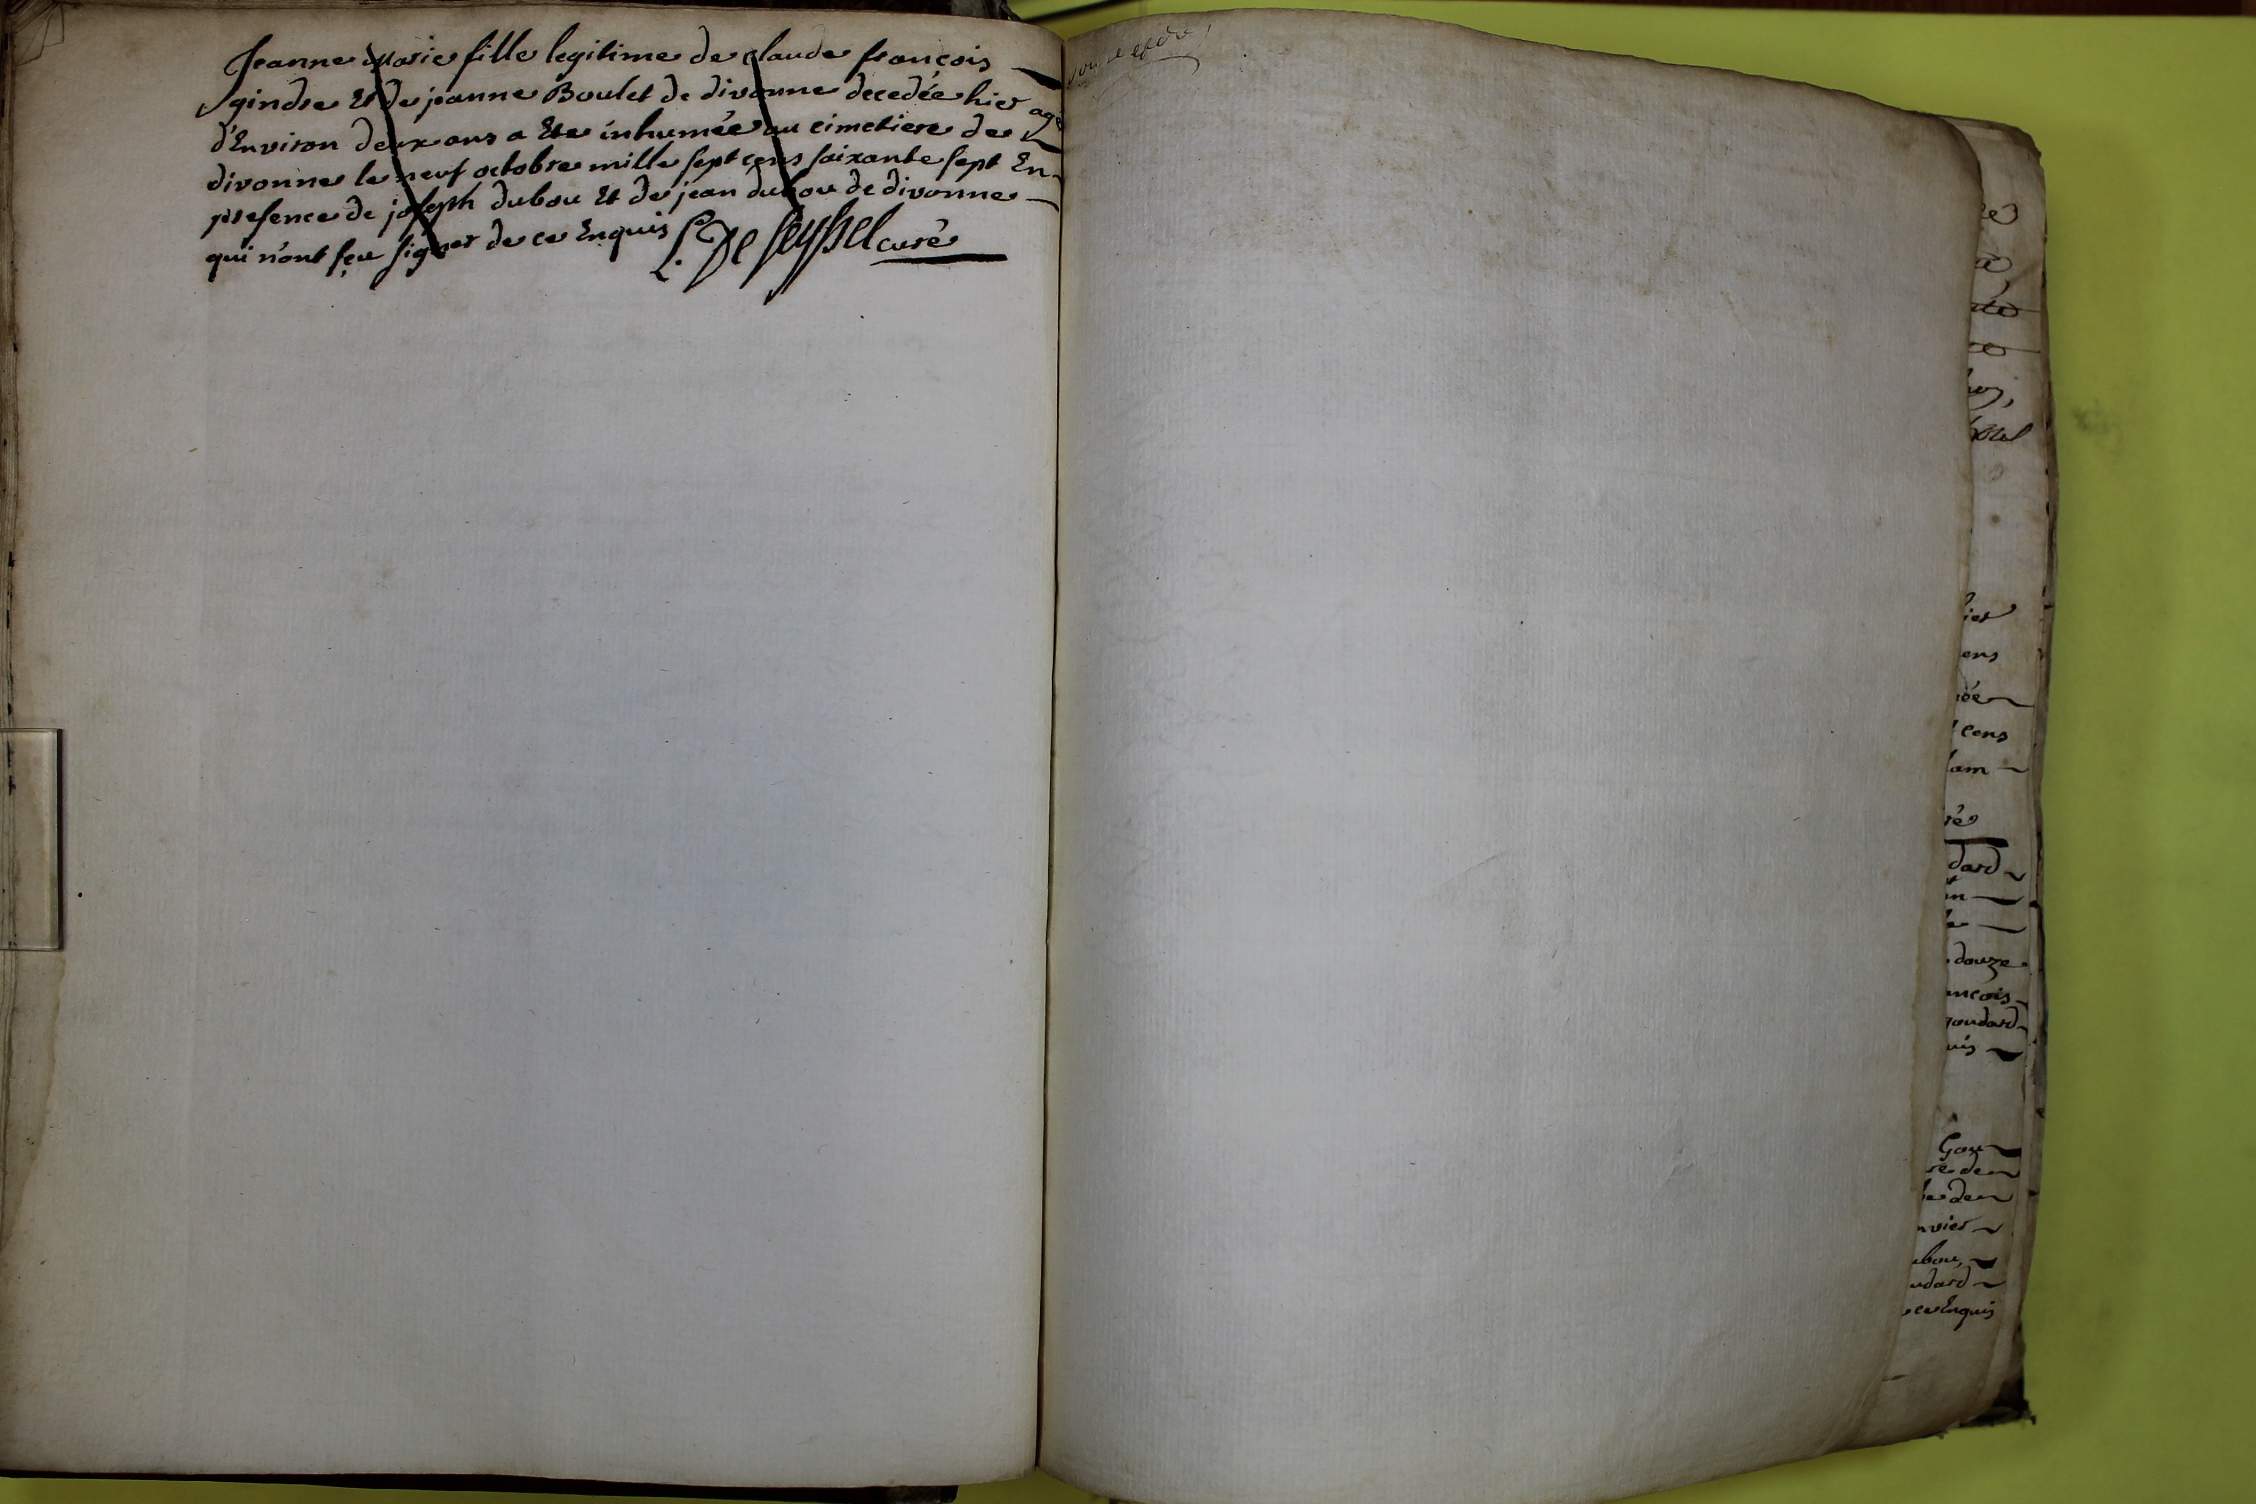 Jeanne Marie fille legitime de claude françois
gindre Et de jeanne Boulet de divonne decedée hier agé
d'Environ deux ans a Ete inhumée au cimetiere de
divonne le neuf octobre mille sept cens soixante sept En
presence de joseph dubou Et de jean dubou de divonne
qui n'ont sçu signer de ce Enquis L. De Seyssel curé
ier
ens
ée
cens
lam
ré
dard
le
douze
ancois
goudard
uis
Gou
re de
be de
nvier
ubou
udard
ce Enquis